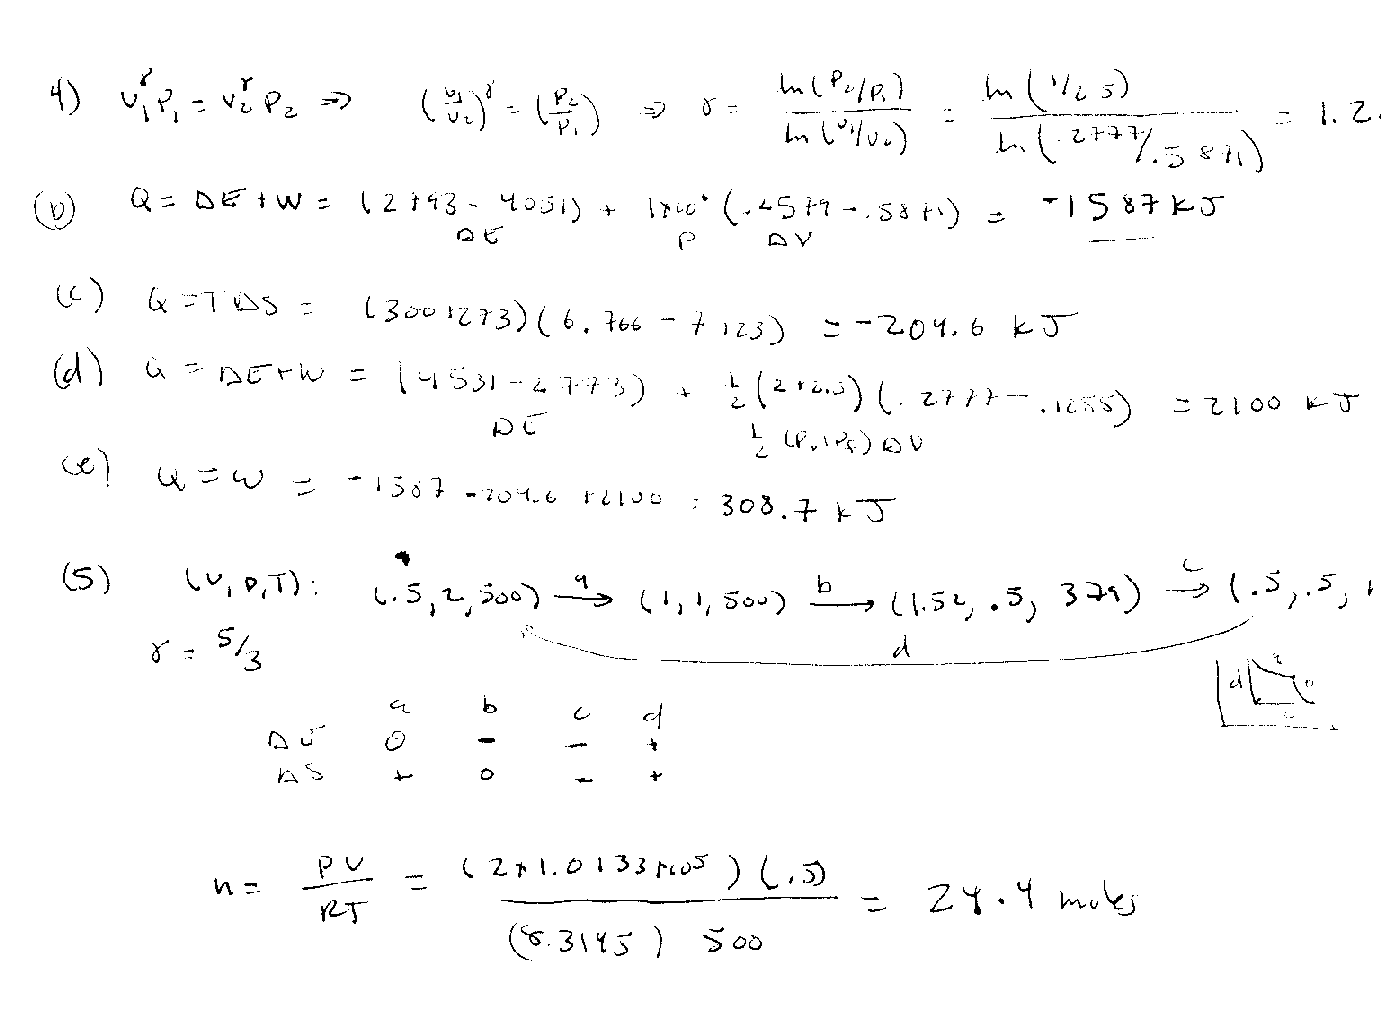 4) V₁^γ P₁ = V₂^γ P₂ ⇒ (V₁/V₂)^γ = (P₂/P₁) ⇒ γ = ln(P₂/P₁) / ln(V₁/V₂) = ln(1/2.5) / ln(.2777/.5871) = 1.2.
(b) Q = ΔE + W = (2793 - 4051) + (.2579 - .5871) = -1587 KJ
ΔE P ΔV
(c) Q = TΔS = (300+273)(6.766 - 7.123) = -204.6 kJ
(d) Q = ΔE+W = (4531 - 2773) + 1/2 (2+2.5)(.2777 - .1255) = 2100 kJ
ΔE 1/2 (P₀+Pf) ΔV
(e) Q = W = -1587 - 204.6 + 2100 = 308.7 kJ
(5) (V, P, T): (.5, 2, 500) →a (1, 1, 500) →b (1.52, .5, 379) →c (.5, .5, 1
γ = 5/3 d
d a b c
a b c d
ΔU 0 - - +
ΔS + 0 - +
n = PV / RT = (2*1.0133x10⁵)(.5) / (8.3145) 500 = 24.4 moles